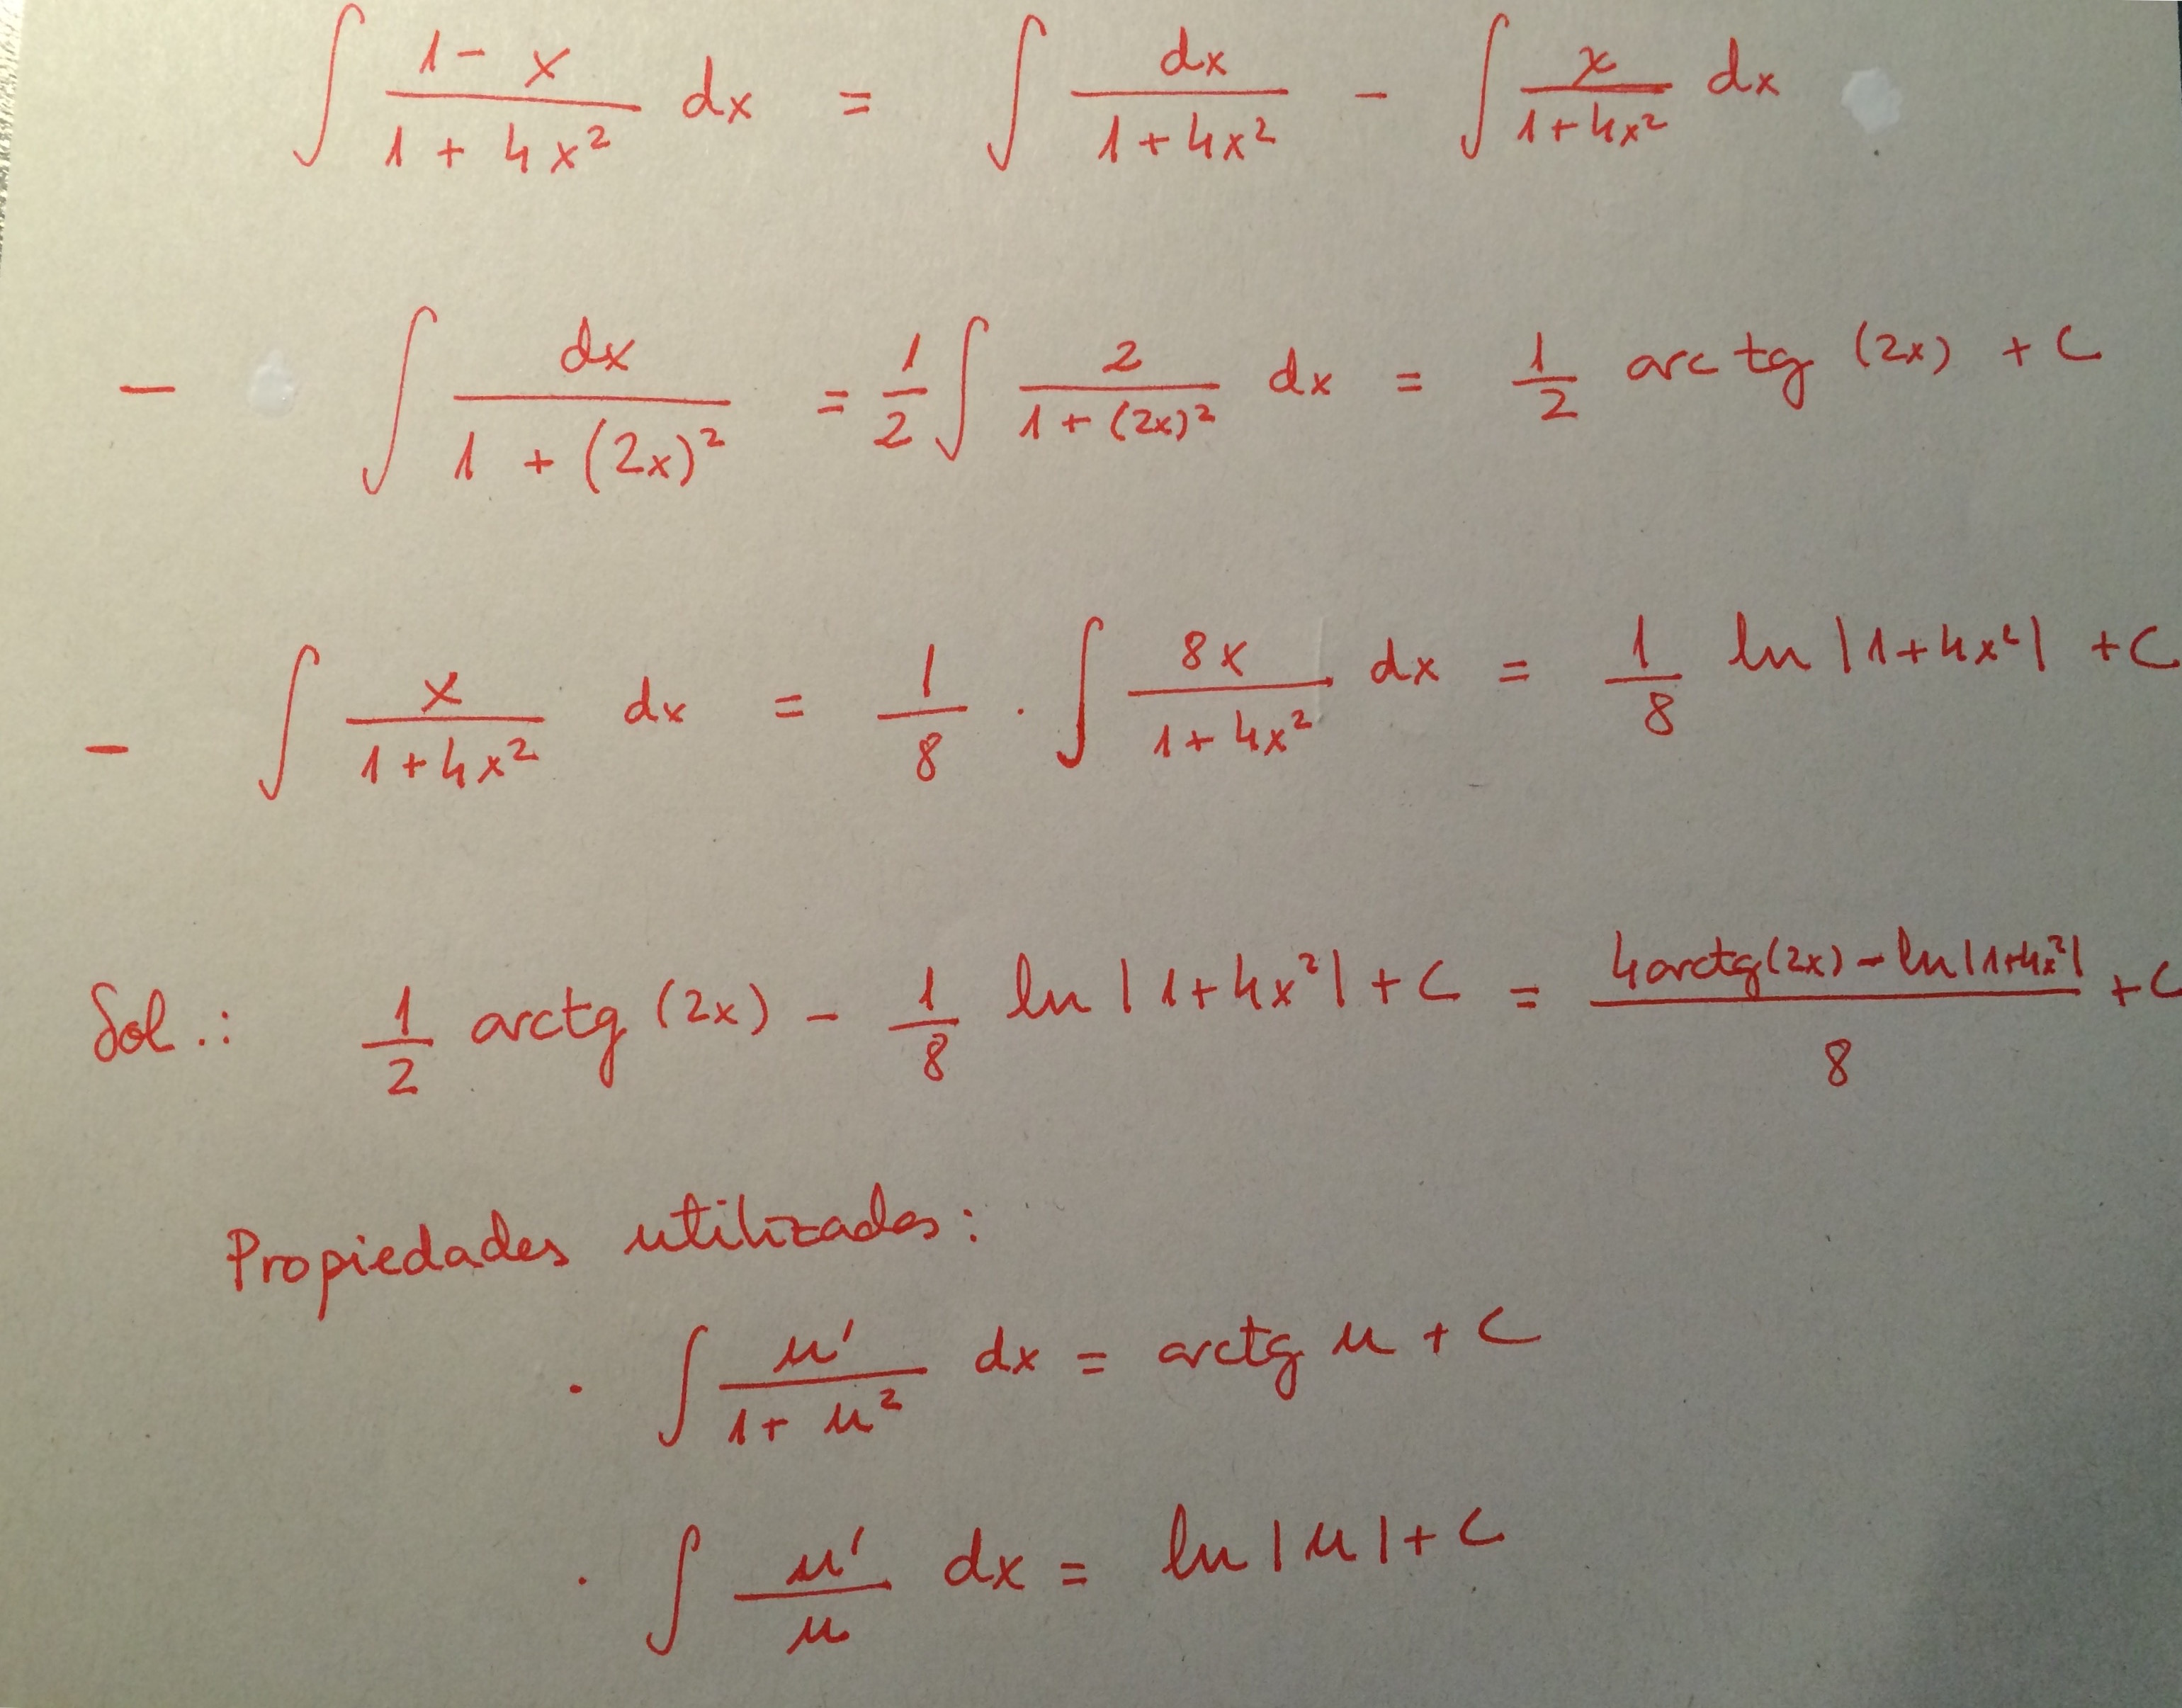 ∫ (1 - x)/(1 + 4x²) dx = ∫ dx/(1 + 4x²) - ∫ x/(1 + 4x²) dx
- ∫ dx/(1 + (2x)²) = 1/2 ∫ 2/(1 + (2x)²) dx = 1/2 arc tg (2x) + C
- ∫ x/(1 + 4x²) dx = 1/8 · ∫ 8x/(1 + 4x²) dx = 1/8 ln |1 + 4x²| + C
Sol.: 1/2 arctg (2x) - 1/8 ln |1 + 4x²| + C = (4 arctg(2x) - ln |1 + 4x²|)/8 + C
Propiedades utilizadas:
· ∫ u'/(1 + u²) dx = arctg u + C
· ∫ u'/u dx = ln |u| + C